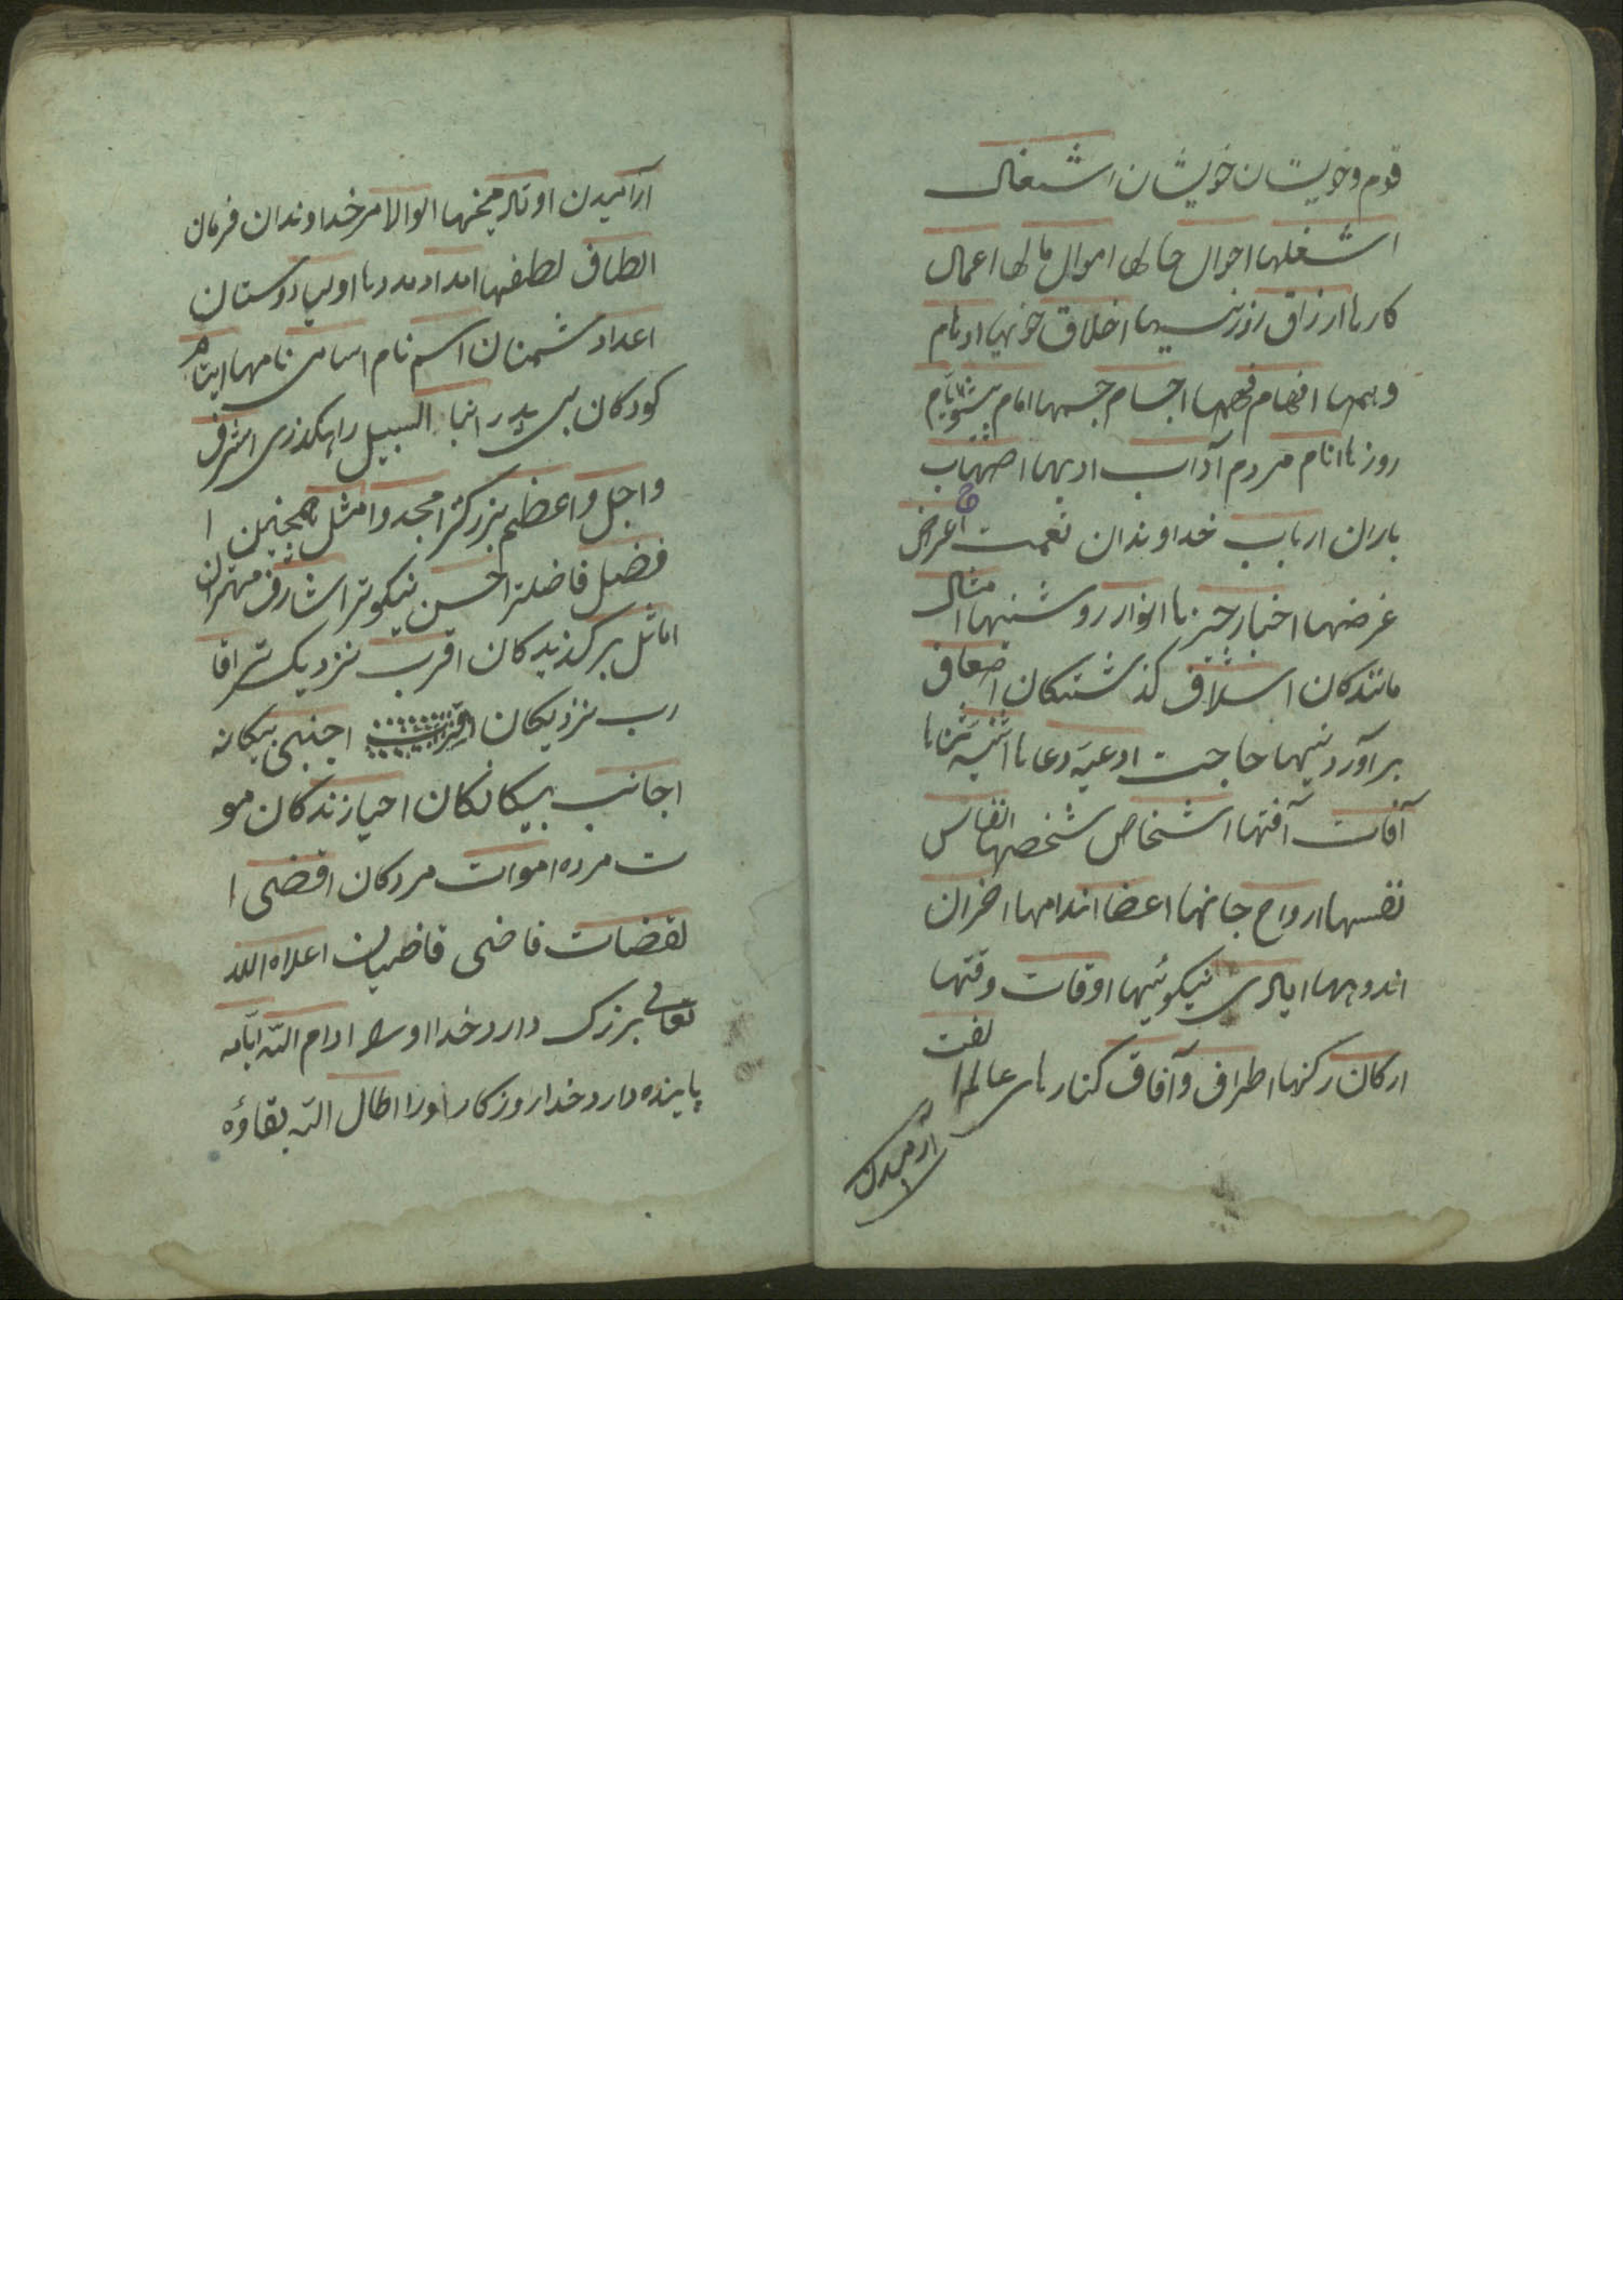 قوم و خویشان خویشان اشغال
اشغلها احوال حالها اموال مالها اعمال
کارها ارزاق روزیسیها اخلاق خویها اوهام
وهمها افهام فهمها اجسام جسمها امام پیشوا ایام
روزها انام مردم آداب ادبها اصحاب
یاران ارباب خداوندان نعمت اعراض
غرضها اخبار خبرها انوار روشنیها امثال
مانندکان اسلاف کذشتکان اضعاف
برآوردنیها حاجت ادعیه دعاها اثنیه ثناها
آفات آفتها اشخاص شخصها انفاس
نفسها ارواح جانها اعضا اندامها احزان
اندوهها ایادی نیکوئیها اوقات وقتها
ارکان رکنها اطراف و آفاق کنارهای عالم الفت
آرمیدن
آرامیدن اوتاد میخها الوالامر خداوندان فرمان
الطاف لطفها امداد مددها اولیا دوستان
اعدا دشمنان اسم نام اسامی نامها ایتام
کودکان بی پدر ابنا السبیل راهکذری اشرف
واجل واعظم بزرکتر امجد وامثل همچنین ا
فضل فاضلتر احسن نیکوتر اشارف مهتران
اماثل برکذیدکان اقرب نزدیکتر اقا
رب نزدیکان اجنبی بیکانه
اجانب بیکانکان احیا زندکان مو
ت مرده اموات مردکان اقضی ا
لقضات قاضی قاضیان اعلاه الله
تعالی بزرک دارد خدا اورا ادام الله ایامه
پاینده دارد خدا روزکار اورا اطال الله بقاؤه